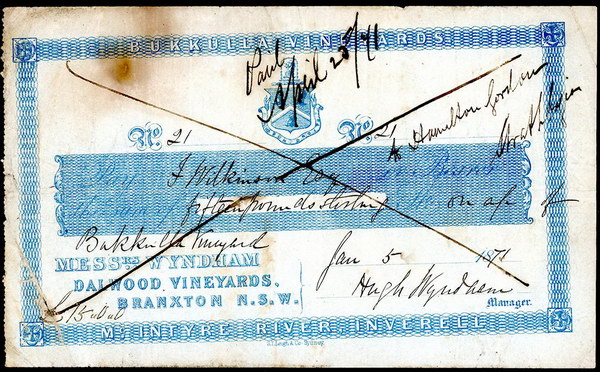 BUKKULLA VINEYARDS
Paid
April 25/71
A Hamilton Gordon
Strathbogie
No. 21 No. 21
Pay J. Wilkinson Esq or Bearer
fifteen pounds sterling on a/c of
Bukkulla Vineyard
MESSRS WYNDHAM
DALWOOD VINEYARDS.
BRANXTON N.S.W.
Jan 5 1871
Hugh Wyndham
Manager.
£15.0.0
MC INTYRE RIVER, INVERELL